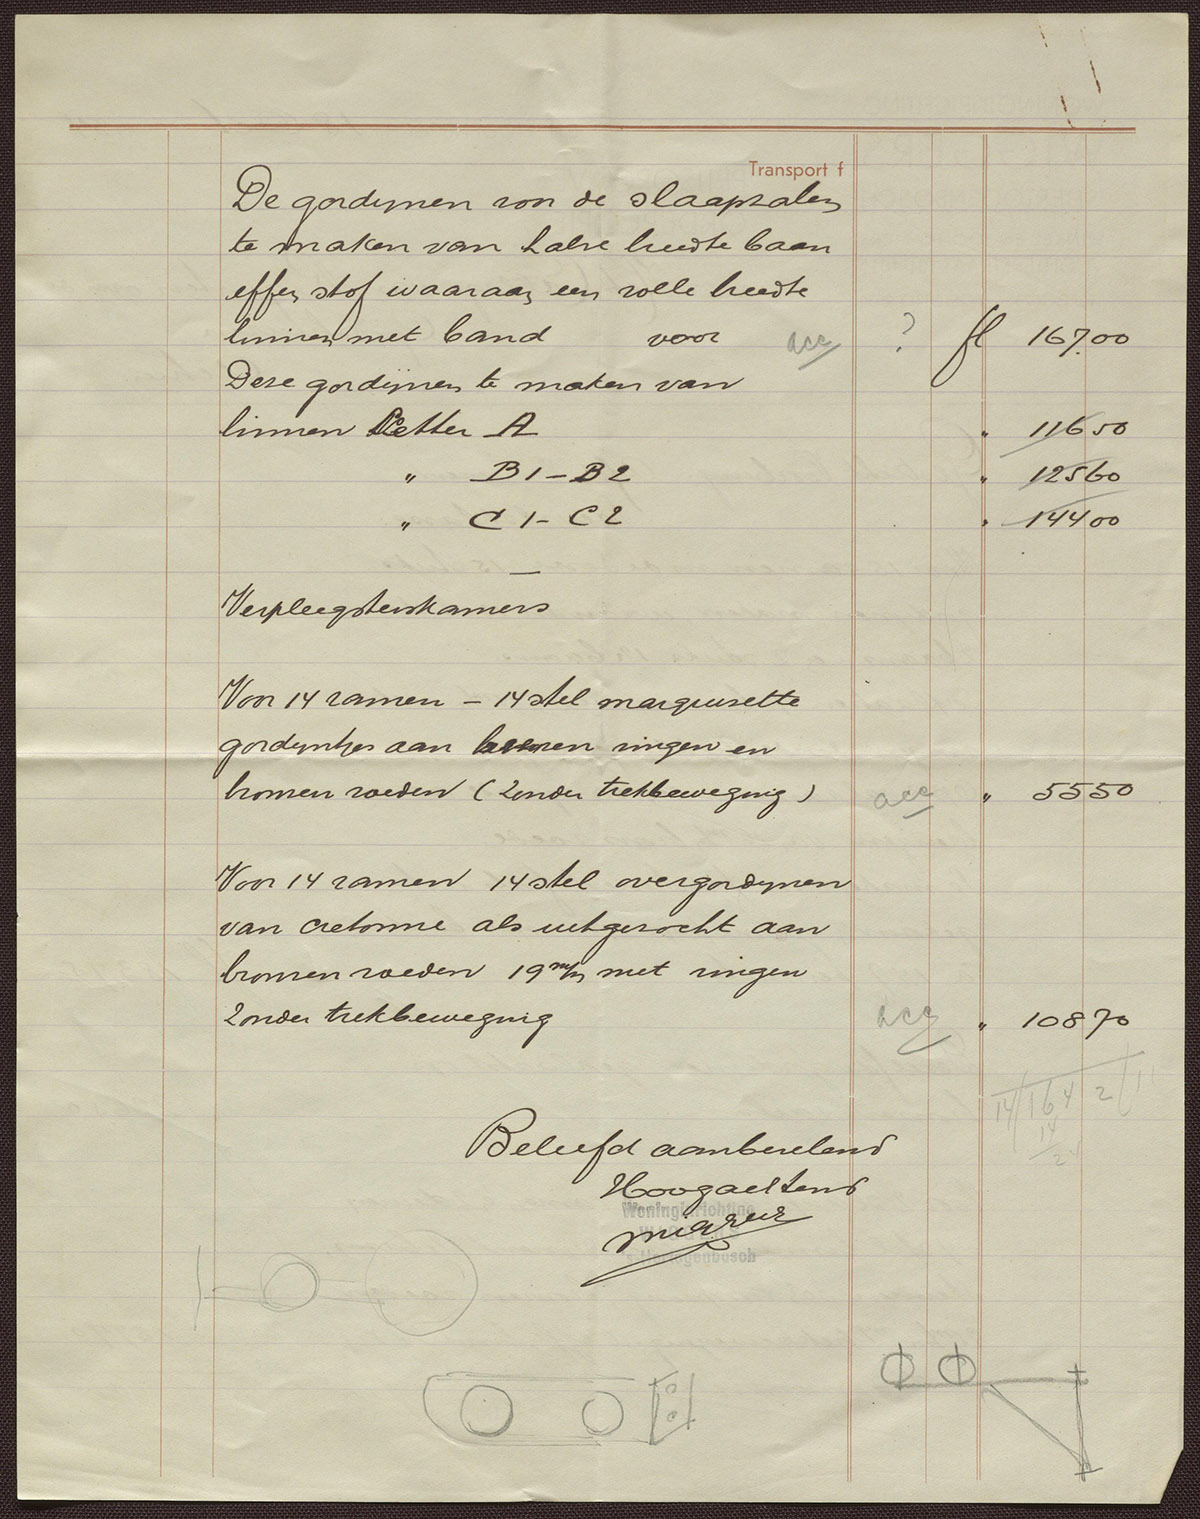 Transport f
De gordijnen von de slaapzalen
te maken van halve breedte baan
effen stof waaraan een volle breedte
linnen met band voor acc ? fl 167.00
Deze gordijnen te maken van
linnen Letter A " 11650
" B1 - B2 " 12560
" C1 - C2 " 14400
—
Verpleegsterskamers
Voor 14 ramen - 14 stel marquisette
gordijntjes aan ringen en
bronzen roeden (zonder trekbeweging) acc " 5550
Voor 14 ramen 14 stel overgordijnen
van cretonne als uitgezocht aan
bronzen roeden 19 m/m met ringen
zonder trekbeweging acc " 10870
14/164 2/11
14
2
Beleefd aanbevelend
Woninginrichting
's-Hertogenbosch